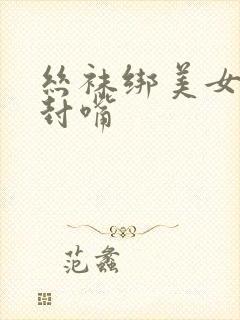 丝袜绑美女
封嘴
范蠡